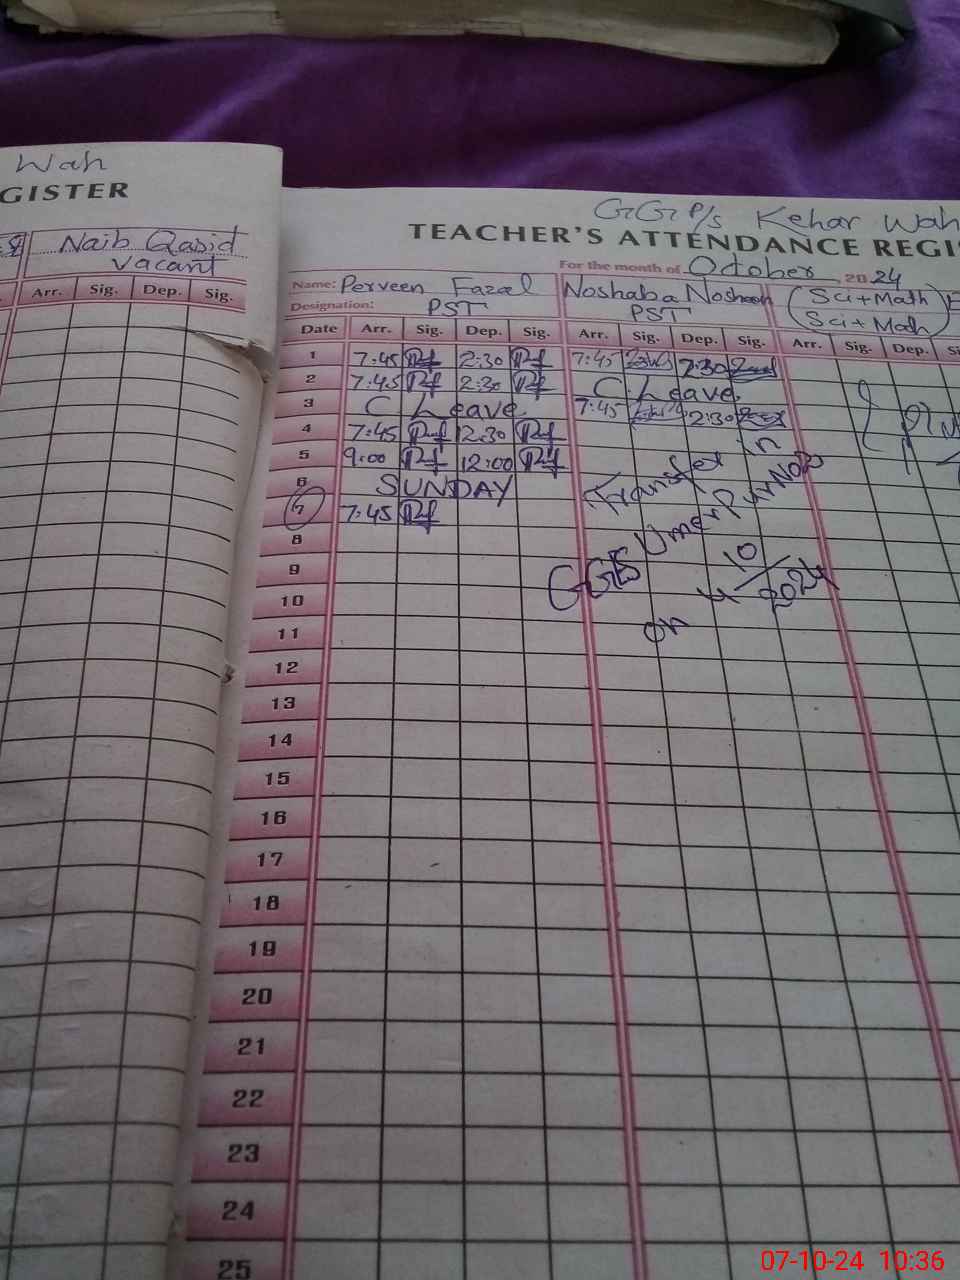 Wah
GISTER
Naib Qasid
Vacant
Arr. Sig. Dep. Sig.
GGP/S Kehar Wah
TEACHER'S ATTENDANCE REGI
For the month of October 2024
Name: Perveen Fazal
Noshaba
(Sci+Math)
Designation: PST
PST
(Sci+Math)
Date Arr. Sig. Dep. Sig. Arr. Sig. Dep. Sig. Arr. Sig. Dep.
1 7:45 Pf 2:30 Pf 7:45 2:30
2 7:45 Pf 2:30 Pf C Leave
3 C Leave 7:45 2:30
4 7:45 Pf 12:30 Pf
5 9:00 Pf 12:00 Pf
6 SUNDAY
7 7:45 Pf
Transfer in
GGPS Umer Pur No
on 4/10/2024
8
9
10
11
12
13
14
15
16
17
18
19
20
21
22
23
24
25
07-10-24 10:36